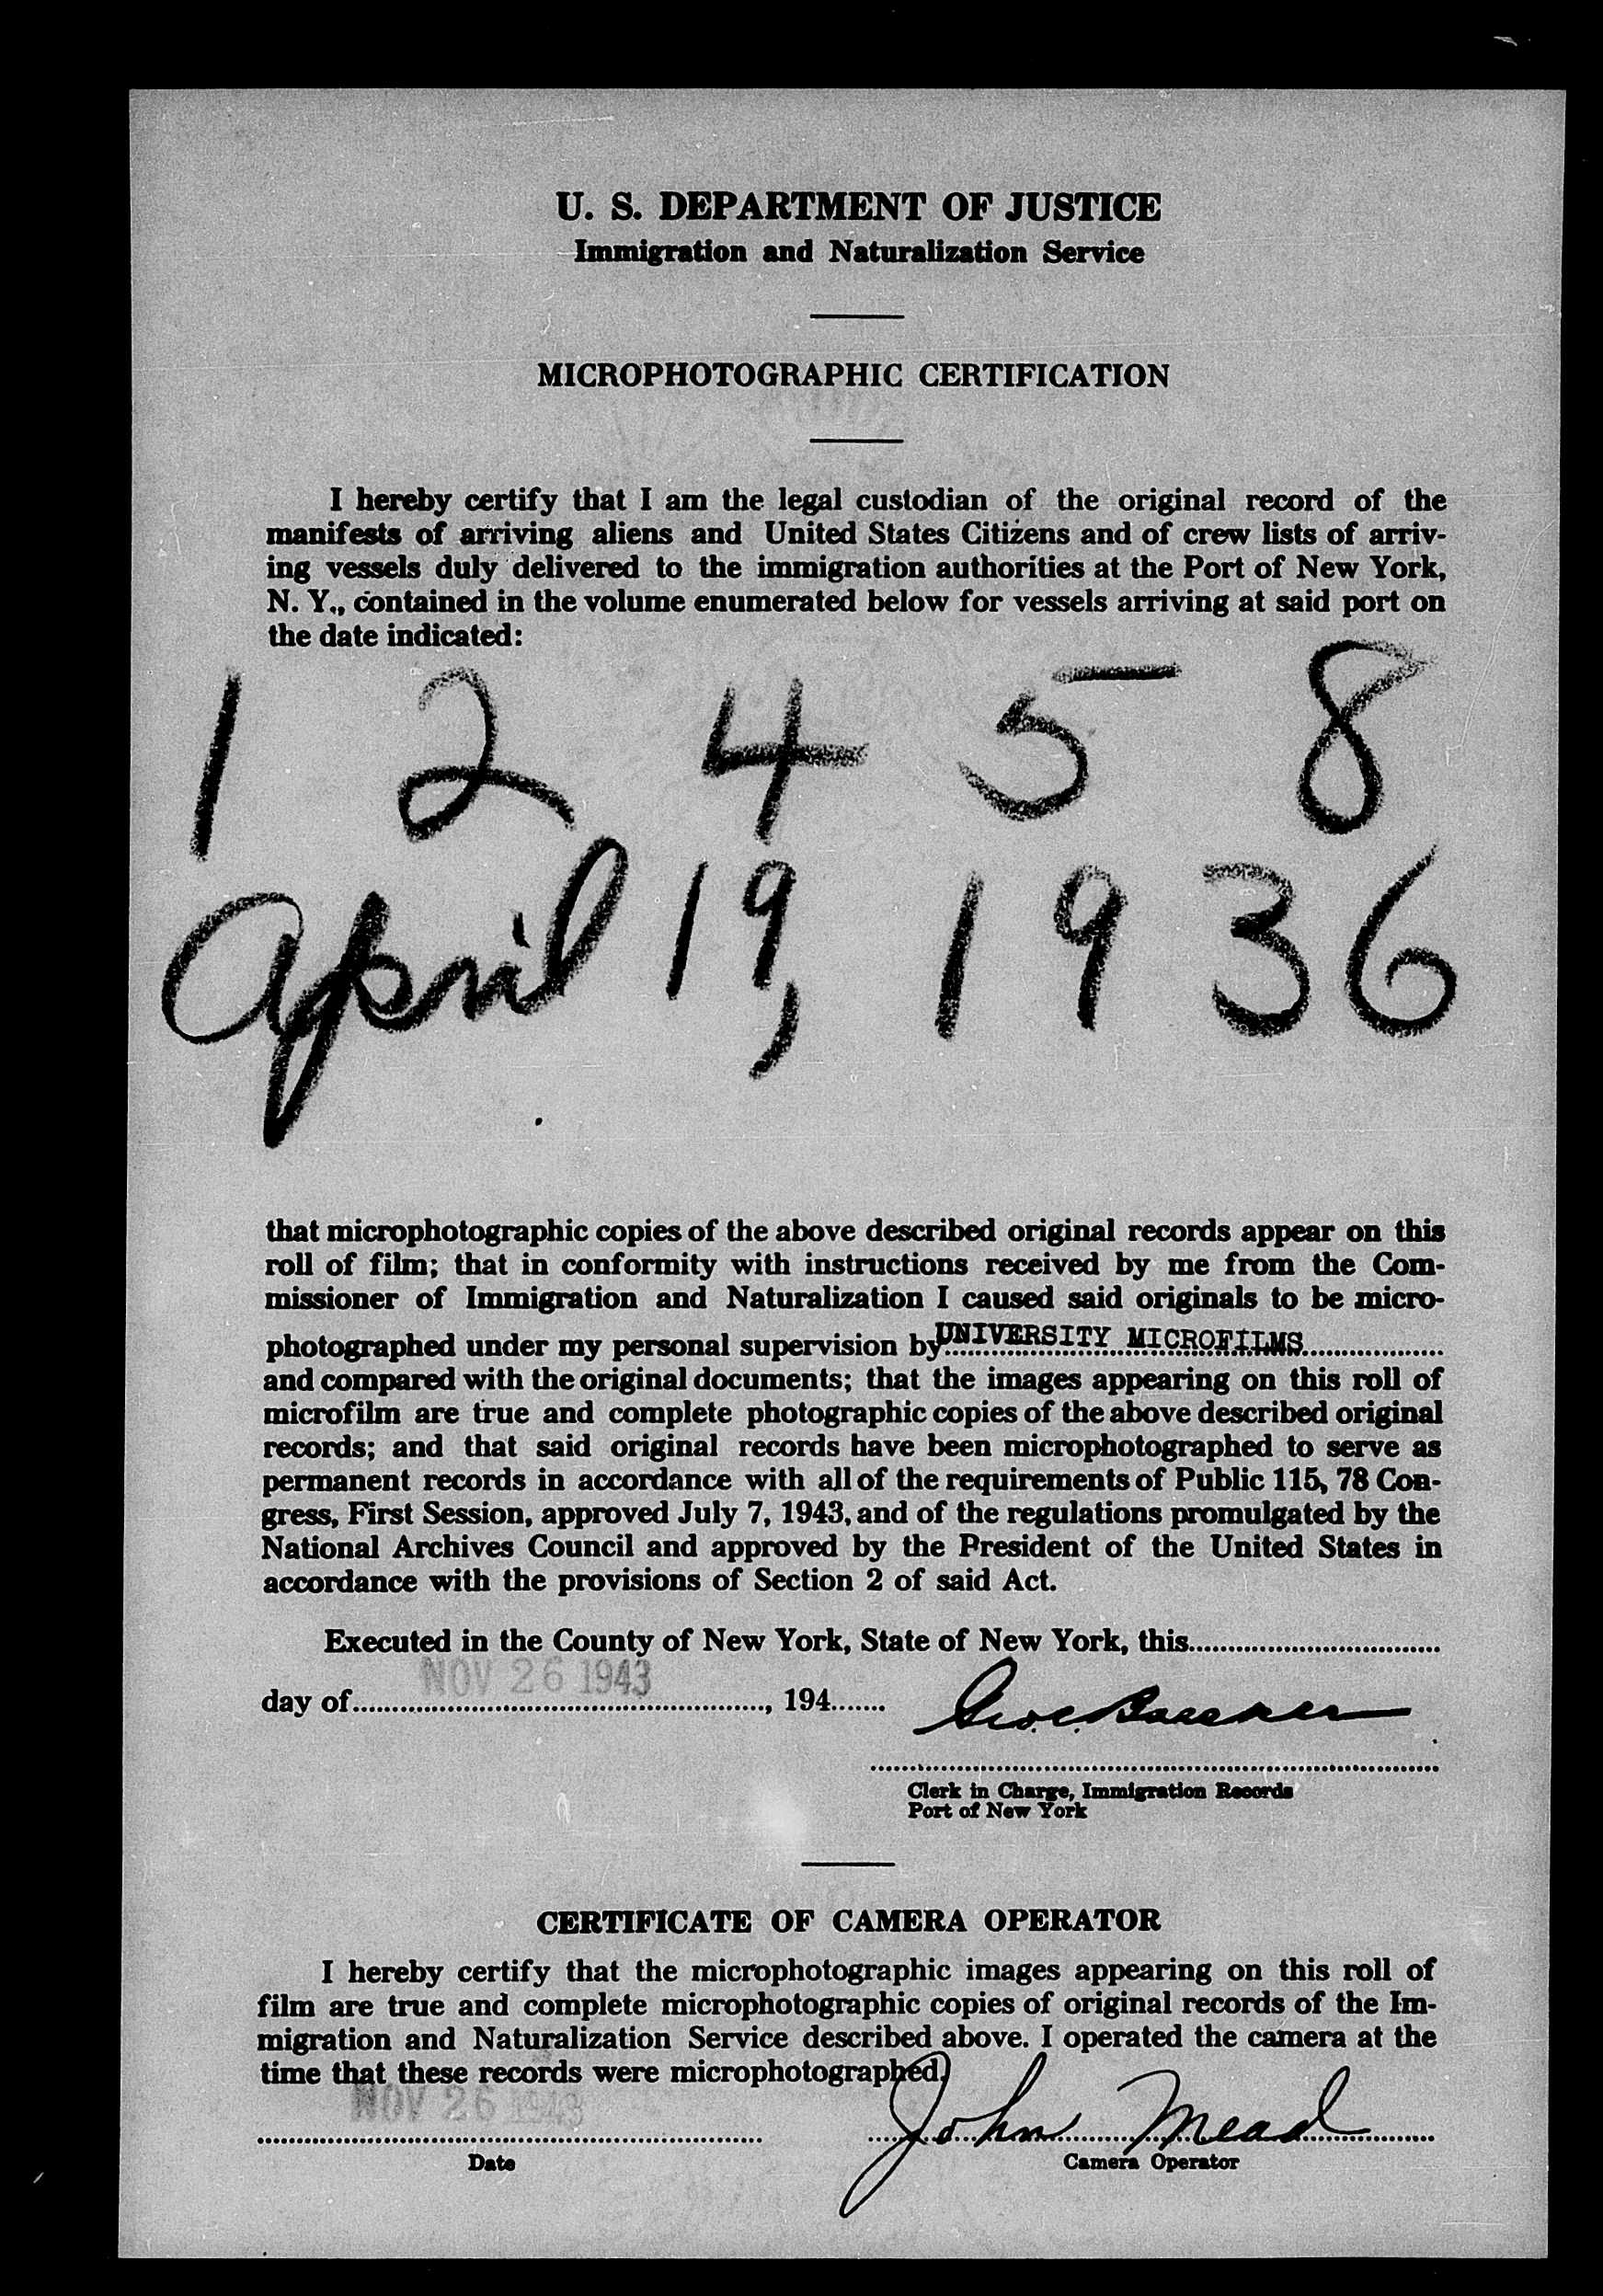 U. S. DEPARTMENT OF JUSTICE
Immigration and Naturalization Service
MICROPHOTOGRAPHIC CERTIFICATION
I hereby certify that I am the legal custodian of the original record of the
manifests of arriving aliens and United States Citizens and of crew lists of arriv-
ing vessels duly delivered to the immigration authorities at the Port of New York,
N. Y., contained in the volume enumerated below for vessels arriving at said port on
the date indicated:
1 2 4 5 8
April 19, 1936
that microphotographic copies of the above described original records appear on this
roll of film; that in conformity with instructions received by me from the Com-
missioner of Immigration and Naturalization I caused said originals to be micro-
photographed under my personal supervision by UNIVERSITY MICROFILMS
and compared with the original documents; that the images appearing on this roll of
microfilm are true and complete photographic copies of the above described original
records; and that said original records have been microphotographed to serve as
permanent records in accordance with all of the requirements of Public 115, 78 Con-
gress, First Session, approved July 7, 1943, and of the regulations promulgated by the
National Archives Council and approved by the President of the United States in
accordance with the provisions of Section 2 of said Act.
Executed in the County of New York, State of New York, this
NOV 26 1943
day of , 194
Clerk in Charge, Immigration Records
Port of New York
CERTIFICATE OF CAMERA OPERATOR
I hereby certify that the microphotographic images appearing on this roll of
film are true and complete microphotographic copies of original records of the Im-
migration and Naturalization Service described above. I operated the camera at the
time that these records were microphotographed.
NOV 26 1943 John Mead
Date Camera Operator